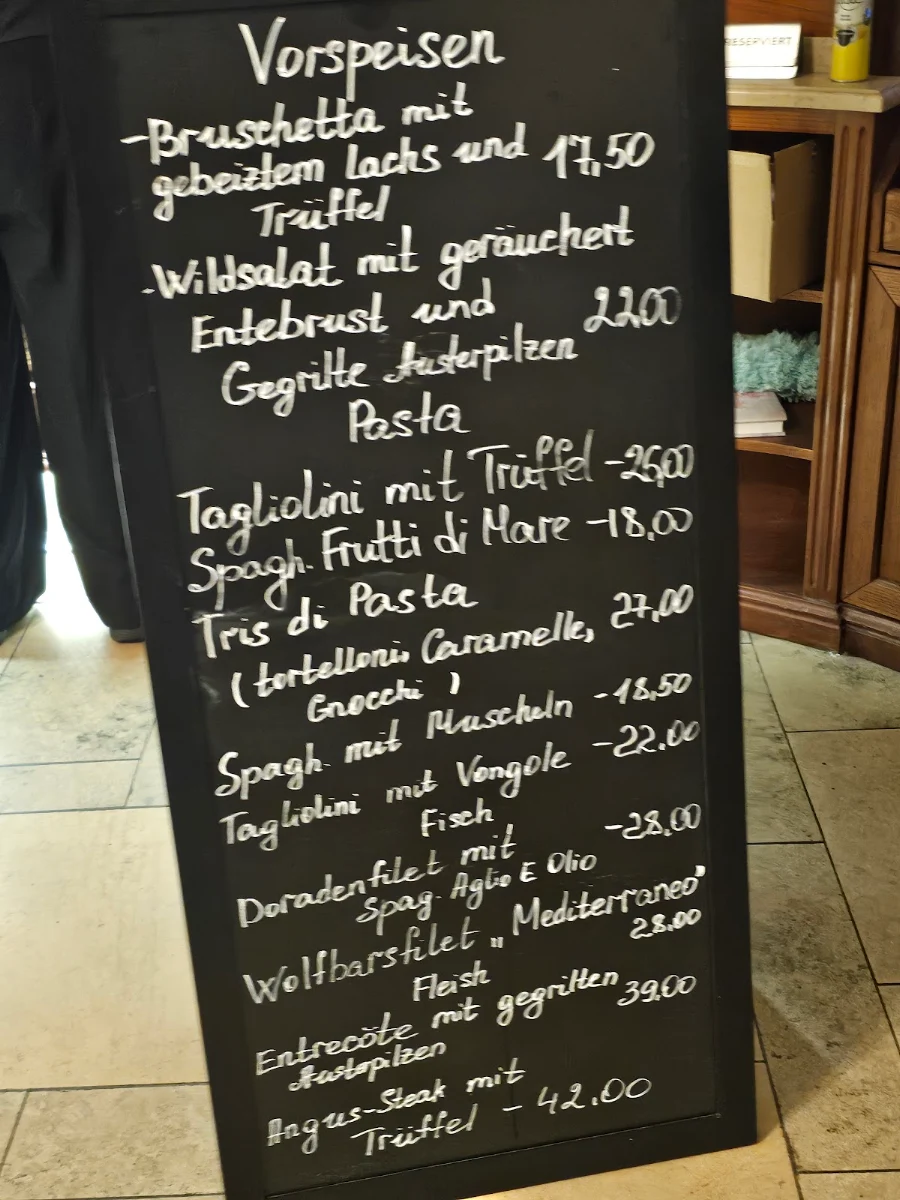 RESERVIERT
Vorspeisen
-Bruschetta mit
gebeiztem lachs und 17,50
Trüffel
-Wildsalat mit geräuchert
Entebrust und 22.00
Gegrillte Austerpilzen
Pasta
Tagliolini mit Trüffel -26,00
Spagh. Frutti di Mare -18,00
Tris di Pasta
(tortelloni, Caramelle, 27,00
Gnocchi )
Spagh. mit Muscheln -18,50
Tagliolini mit Vongole -22.00
Fisch
Doradenfilet mit -28,00
Spag. Aglio E Olio
Wolfbarsfilet „Mediterraneo"
28.00
Fleish
Entrecôte mit gegrilten 39.00
Austepilzen
Angus-Steak mit
Trüffel - 42.00